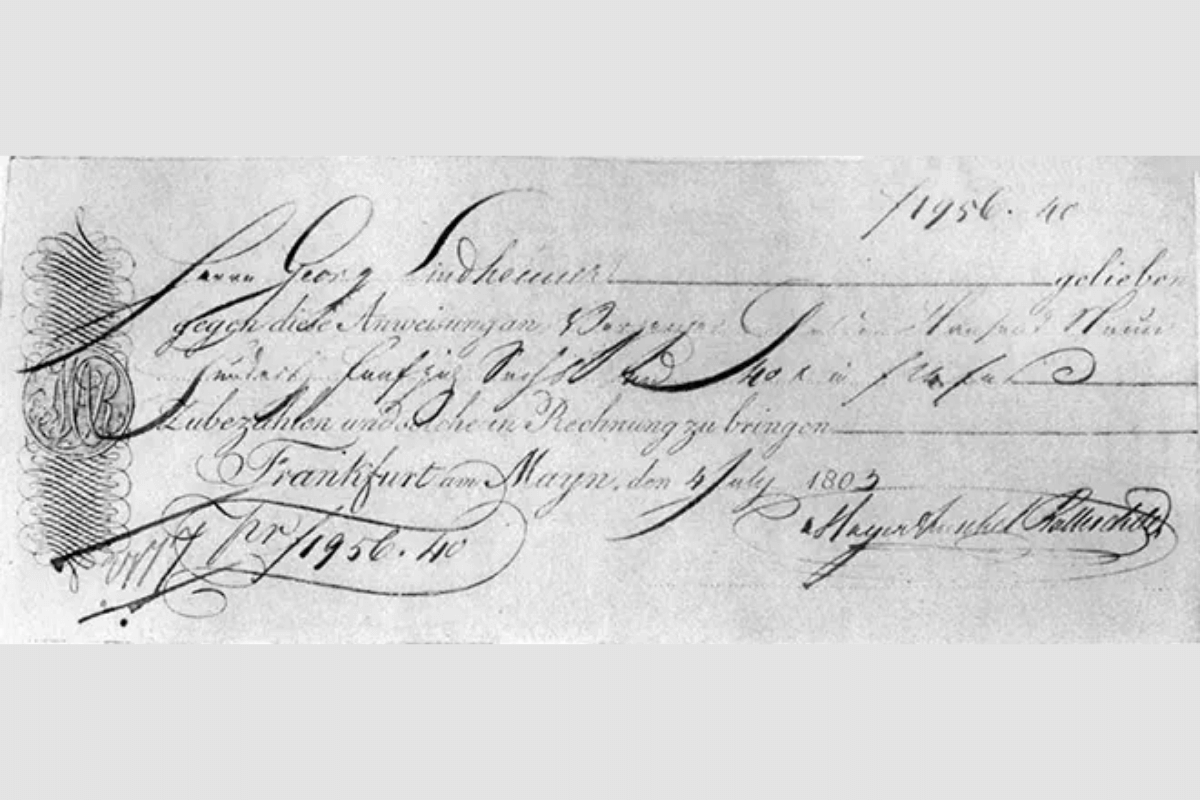 f 1956. 40
Herrn Georg Lindheimer gelieben
gegen diese Anweisung an Gulden Tausend Neun
hundert fünfzig Sechs und 40 x in f 24 fus
Zubezahlen und solche in Rechnung zu bringen
Frankfurt am Mayn, den 4 July 1803
Mayer Amschel Rothschild
pr f 1956. 40
MAR